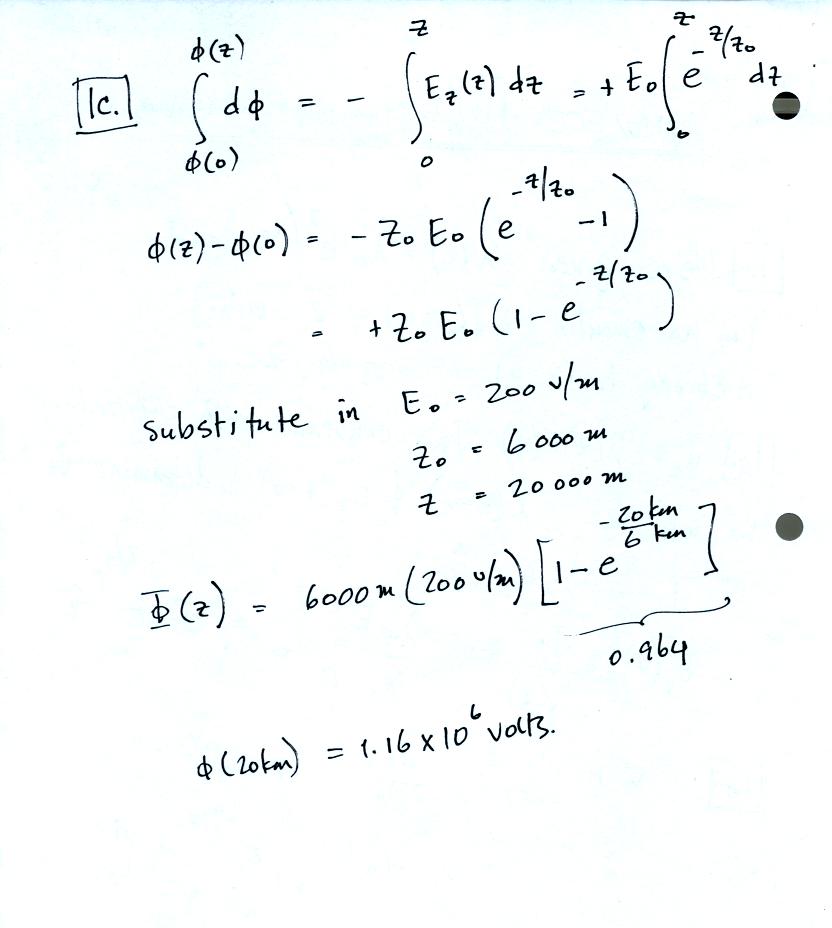 1c. ∫_{ϕ(0)}^{ϕ(z)} dϕ = - ∫_0^z E_z(z) dz = + E_0 ∫_0^z e^{-z/z_0} dz
ϕ(z) - ϕ(0) = - z_0 E_0 (e^{-z/z_0} - 1)
= + z_0 E_0 (1 - e^{-z/z_0})
substitute in E_0 = 200 v/m
z_0 = 6000 m
z = 20 000 m
Φ(z) = 6000 m (200 v/m) [1 - e^{-20 km/6 km}]
0.964
ϕ(20km) = 1.16 x 10^6 volts.